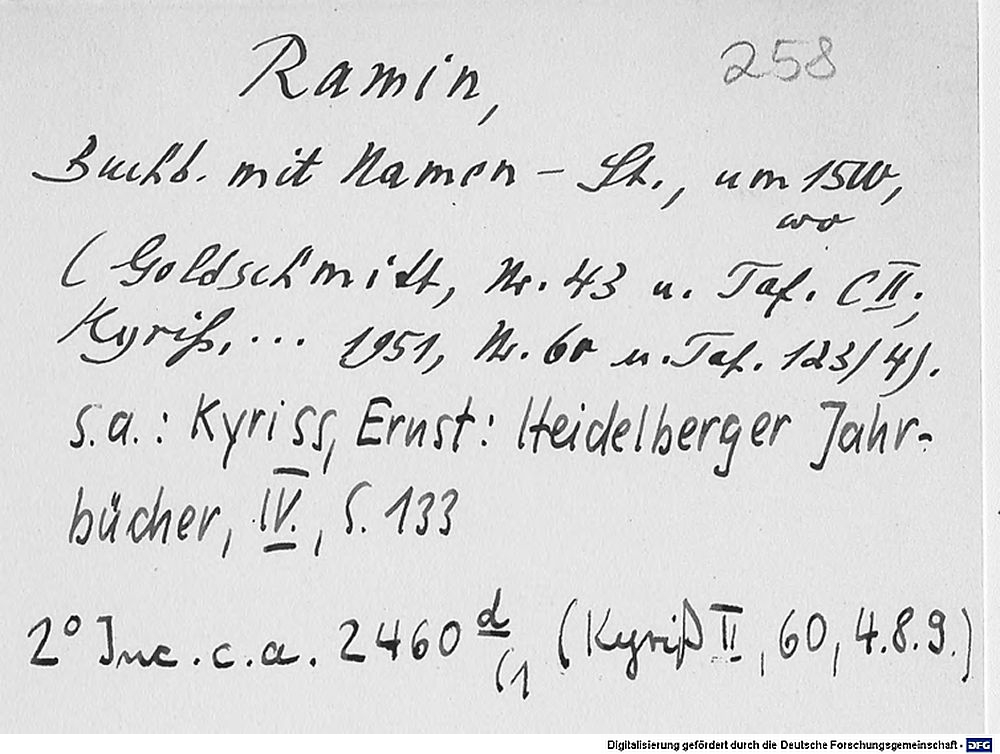 Ramin, 258
Buchb. mit Namen - St., um 1500,
wo
(Goldschmidt, Nr. 43 u. Taf. CII;
Kyriß, ... 1951, Nr. 60 u. Taf. 123/4).
s.a.: Kyriss, Ernst: Heidelberger Jahr-
bücher, IV., S. 133
2° Inc. c. a. 2460 d (Kyriß II, 60, 4.8.9.)
(1
Digitalisierung gefördert durch die Deutsche Forschungsgemeinschaft - DFG